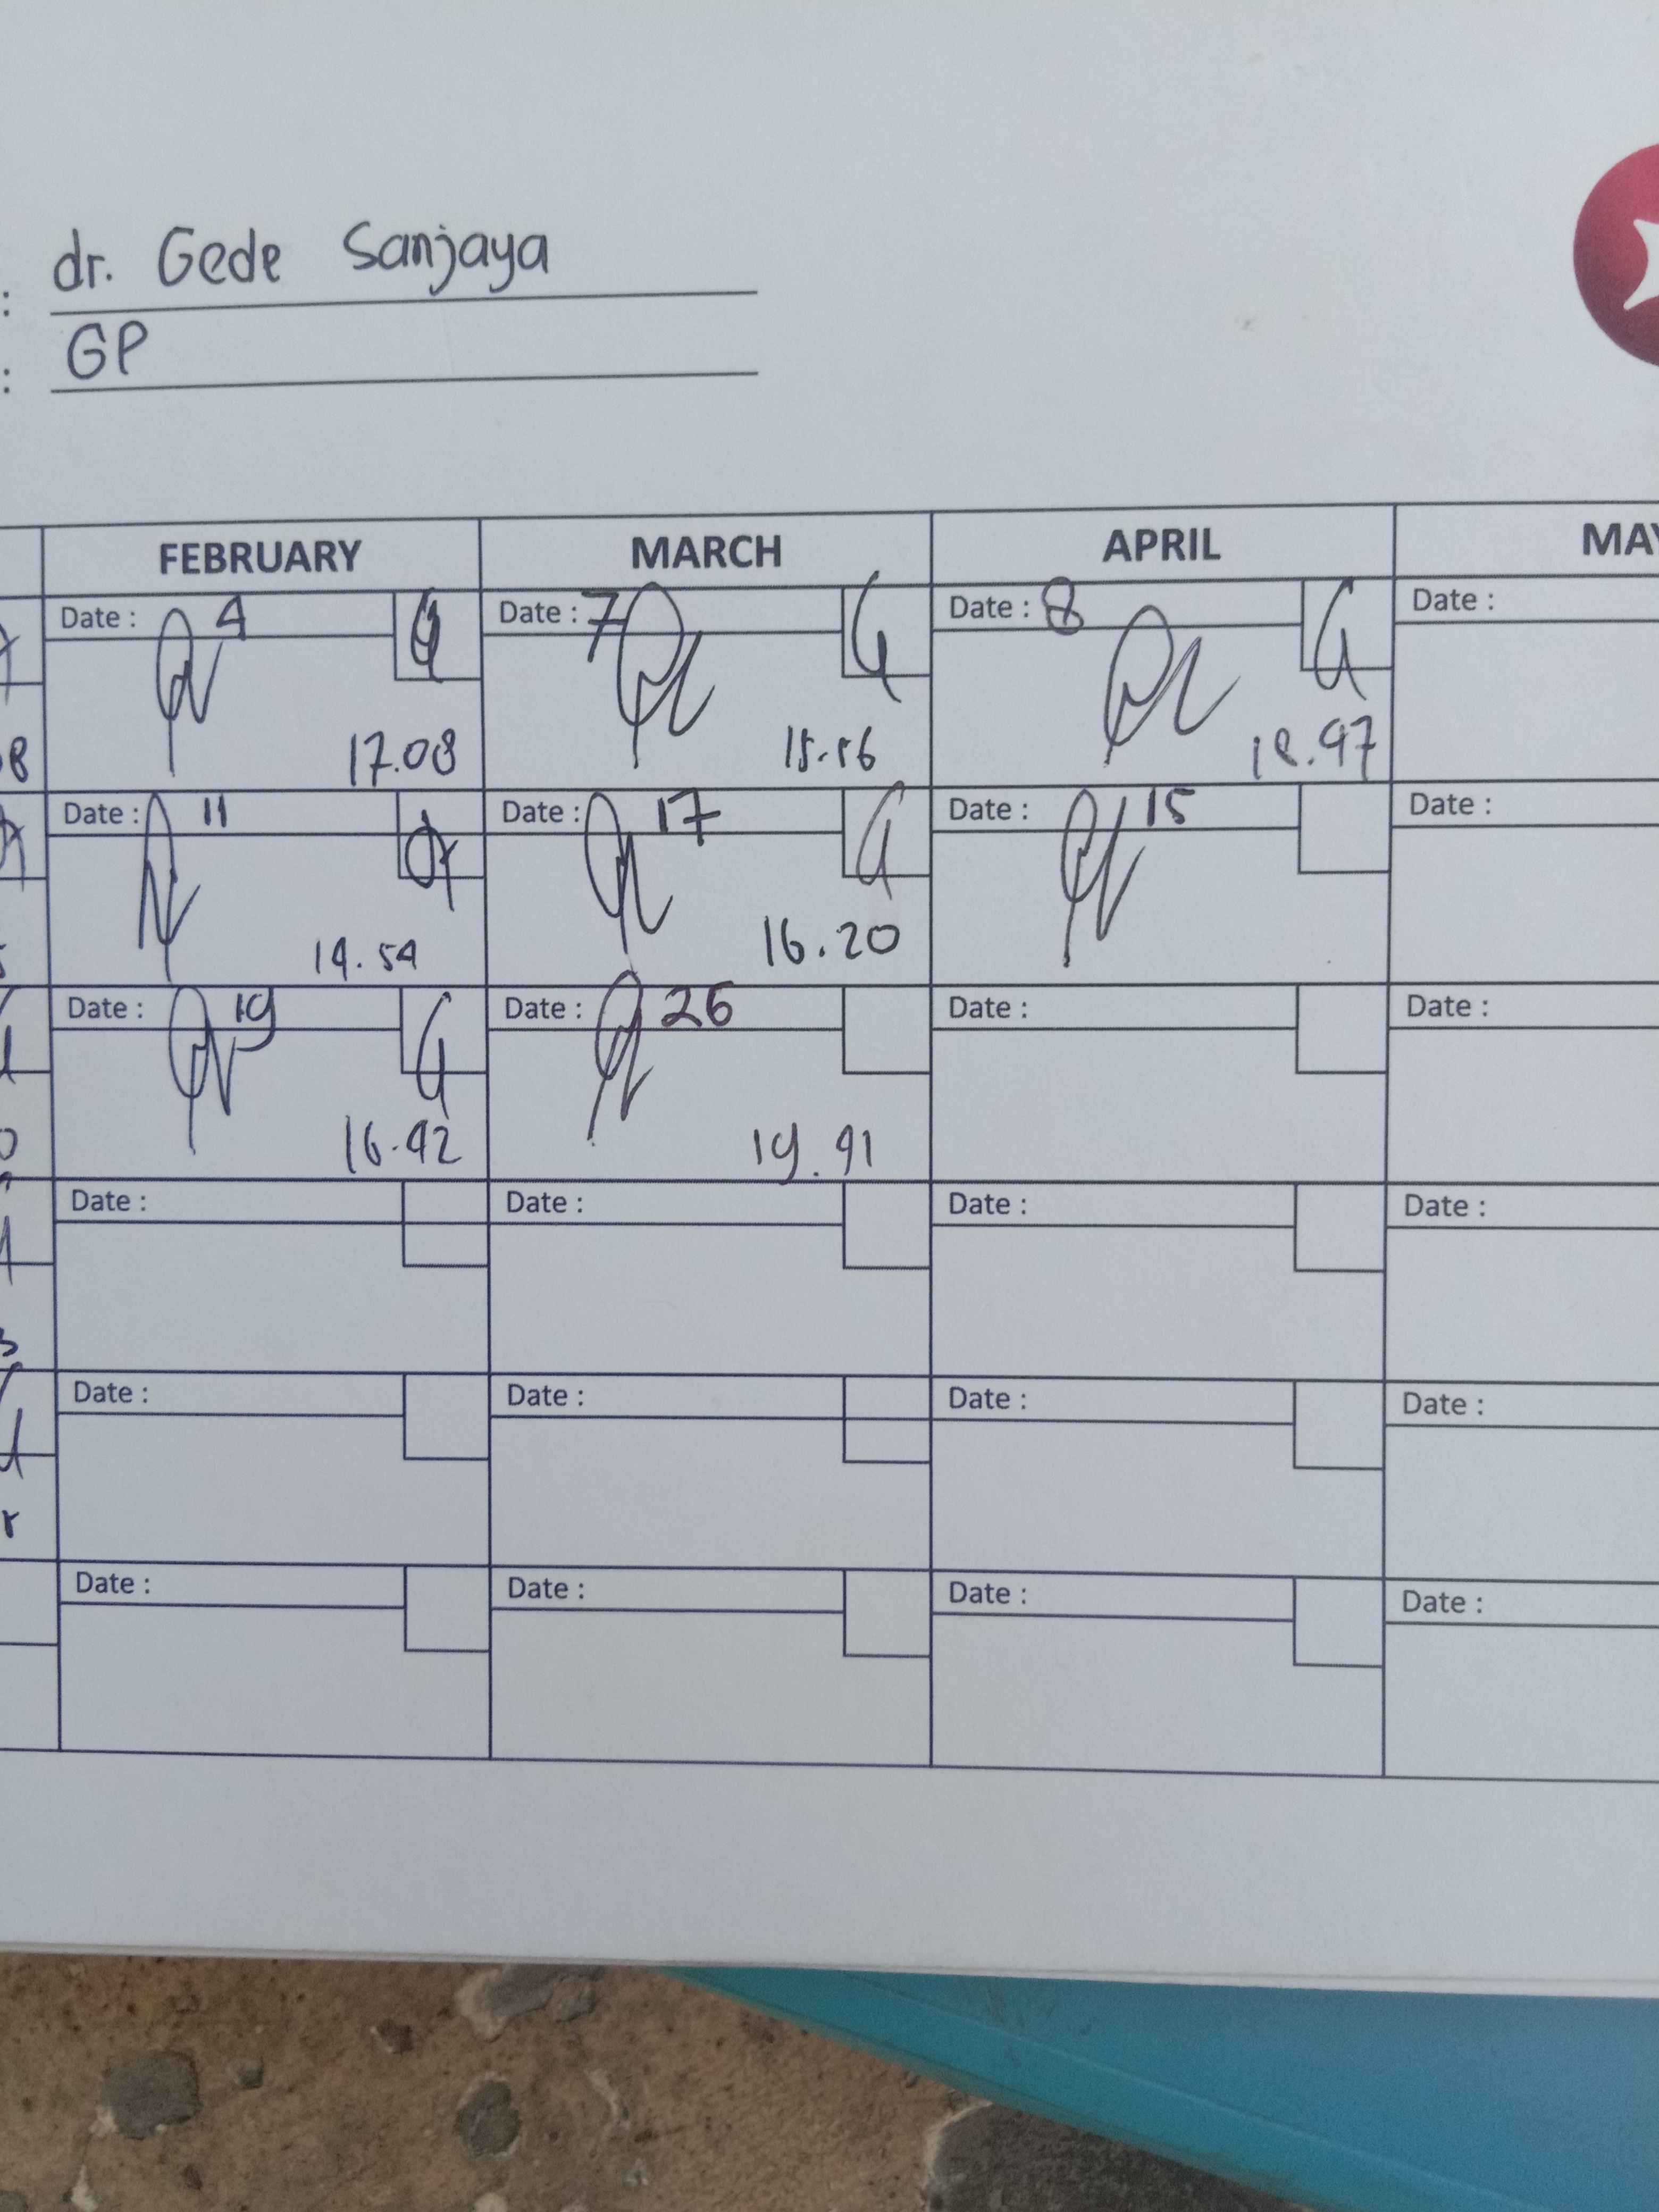 : dr. Gede Sanjaya
: GP
FEBRUARY MARCH APRIL MAY
Date : 4 Date : 7 Date : 8 Date :
17.08 15.56 18.47
Date : 11 Date : 17 Date : 15 Date :
14.54 16.20
Date : 19 Date : 26 Date : Date :
16.42 19.41
Date : Date : Date : Date :
Date : Date : Date : Date :
Date : Date : Date : Date :